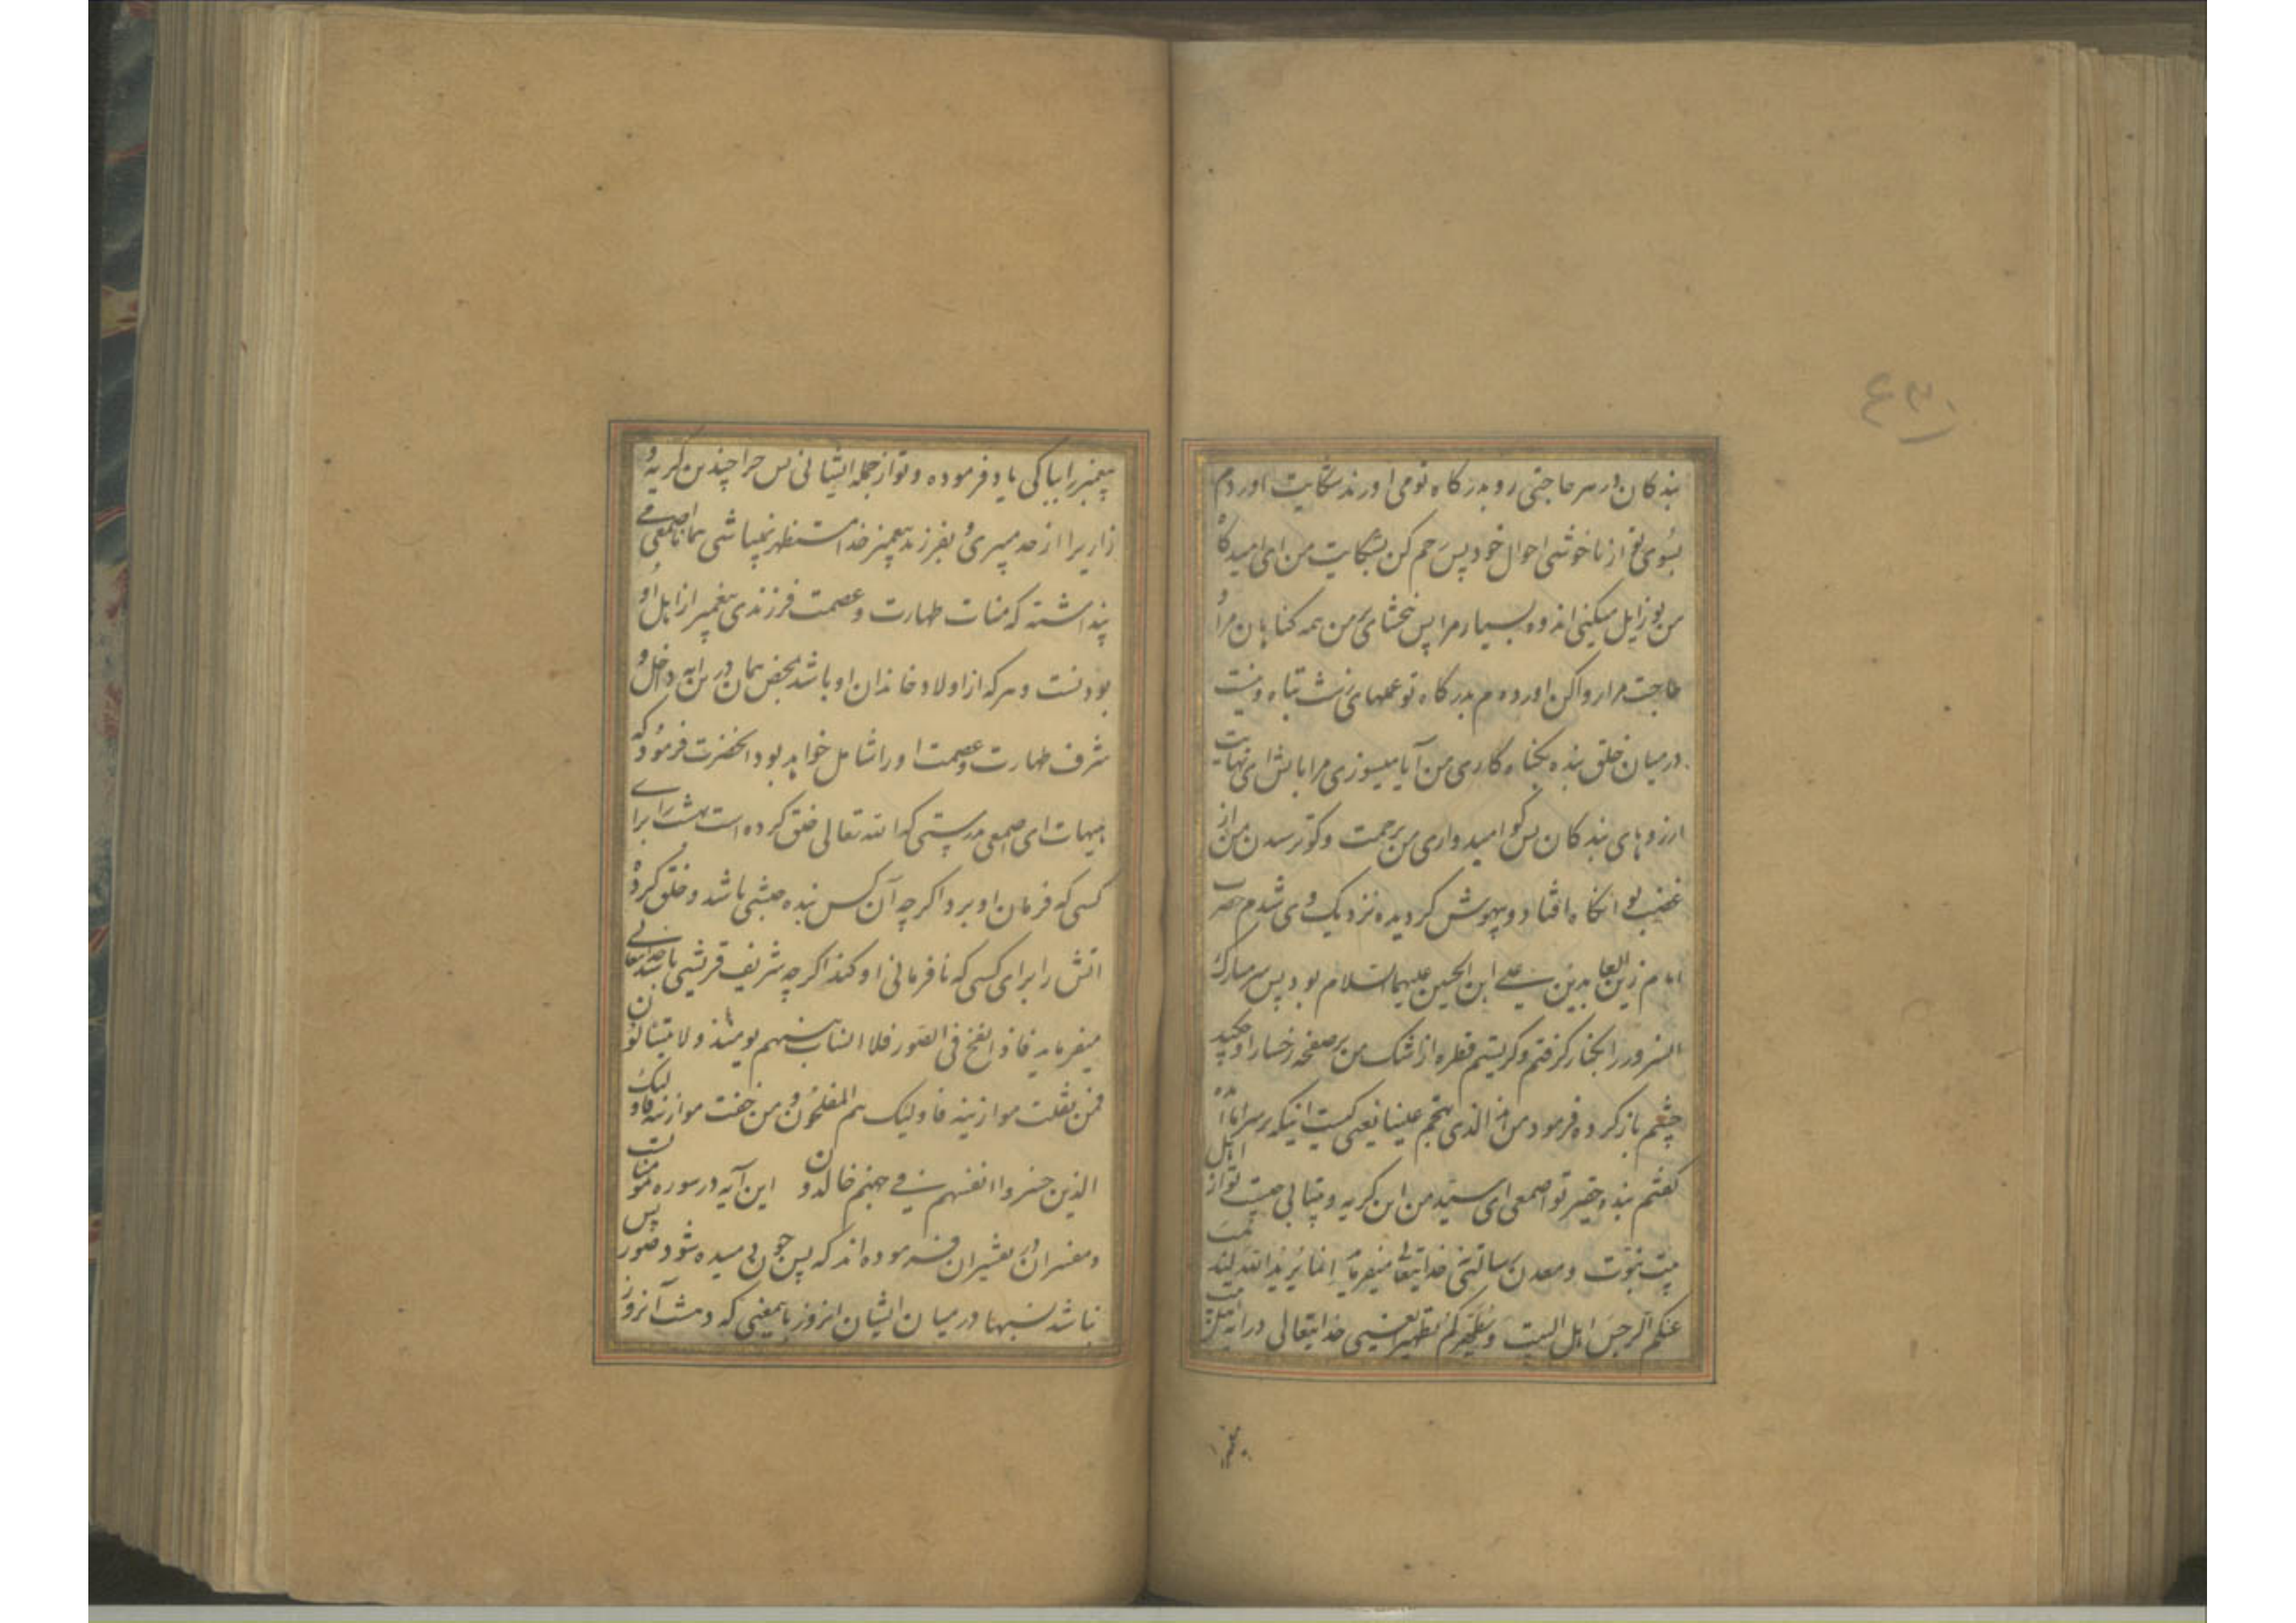 بندکان در هر حاجتی رو بدرکاه تو می اورند شکایت اوردم
بسوی تو از ناخوشی احوال خود پس رحم کن بشکایت من ای امیدکاه
من تو زایل میکنی اندوه بسیار مرا پس ببخشای من همه کناهان مرا و
حاجت مرا روا کن اورده ام بدرکاه تو عملهای زشت تباه و نیست
در میان خلق بنده بکناه کاری من آیا میسوزی مرا باتش ای نهایت
ارزوهای بندکان پس کو امیدواری من برحمت و کو ترسیدن من از
غضب تو انکاه بافتاد و بیهوش کردیده نزدیک وی شدم حضرت
امام زین العابدین علی ابن الحسین علیهما السلام بود پس سر مبارک
انسرور را بکنار کرفتم و کریستم قطره از اشک من بر صفحه رخسار او چکید
چشم باز کرده فرمود من هذا الذی یهجم علینا یعنی کیست اینکه بر سر ما آمد
کفتم بنده حقیر تو اصمعی ای سید من این کریه و بیتابی چیست تو از اهل
بیت نبوت و معدن رسالتی خدایتعالی میفرماید انما یرید الله لیذهب
عنکم الرجس اهل البیت و یطهرکم تطهیرا یعنی خدایتعالی در این آیه اهل بیت
پیغمبر
پیغمبر را بپاکی یاد فرموده و تو از جمله ایشانی پس چرا چندین کریه و
زاریرا از حد میبری و بفرزند پیغمبر خدا مستظهر نمیباشی همانا اصمعی
پنداشته که منات طهارت و عصمت فرزندی پیغمبر از اهل او
بودنست و هر که از اولاد خاندان او باشد بمحض همان در این آیه داخل و
شرف طهارت و عصمت او را شامل خواهد بود انحضرت فرمود که
هیهات ای اصمعی بدرستی که الله تعالی خلق کرده است بهشت را برای
کسی که فرمان او برد اکرچه آن کس بنده حبشی باشد و خلق کرده
اتش را برای کسی که نافرمانی او کند اکرچه شریف قریشی باشد خدایتعالی
میفرماید فاذا نفخ فی الصور فلا انساب بینهم یومئذ و لا یتسائلون
فمن ثقلت موازینه فاولیک هم المفلحون و من خفت موازینه فاولیک
الذین خسروا انفسهم فی جهنم خالدون این آیه در سوره مومنات
و مفسران در تفسیر ان فرموده اند که پس چون دمیده شود صور پس
نباشد نسبها در میان ایشان انروز بایمعنی که دهشت آنروز